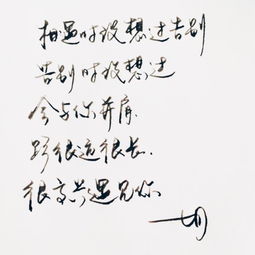 相遇时没想过告别
告别时没想过
会与你并肩
路很远很长.
很高兴遇见你